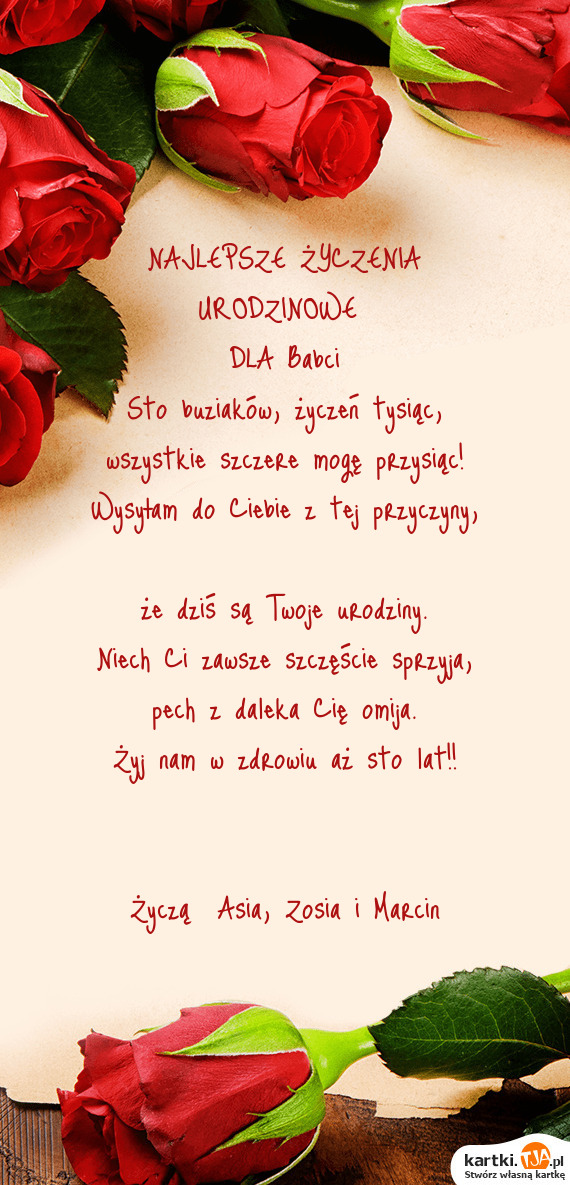 NAJLEPSZE ŻYCZENIA
URODZINOWE
DLA Babci
Sto buziaków, życzeń tysiąc,
wszystkie szczere mogę przysiąc!
Wysyłam do Ciebie z tej przyczyny,
że dziś są Twoje urodziny.
Niech Ci zawsze szczęście sprzyja,
pech z daleka Cię omija.
Żyj nam w zdrowiu aż sto lat!!
Życzą Asia, Zosia i Marcin
kartki.TJA.pl
Stwórz własną kartkę